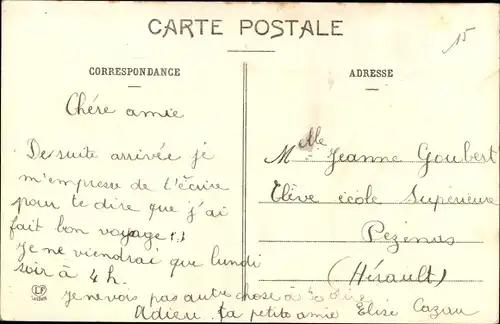 CARTE POSTALE
15
CORRESPONDANCE
ADRESSE
Chére amie
De suite arrivée je
m'empresse de t'écrire
pour te dire que j'ai
fait bon voyage
je ne viendrai que lundi
soir à 4 h.
je ne vois pas autre chose à te dire
Adieu ta petite amie Elise Cazau
Melle Jeanne Goubert
Elève école Supérieure
Pezenas
(Hérault)
LF